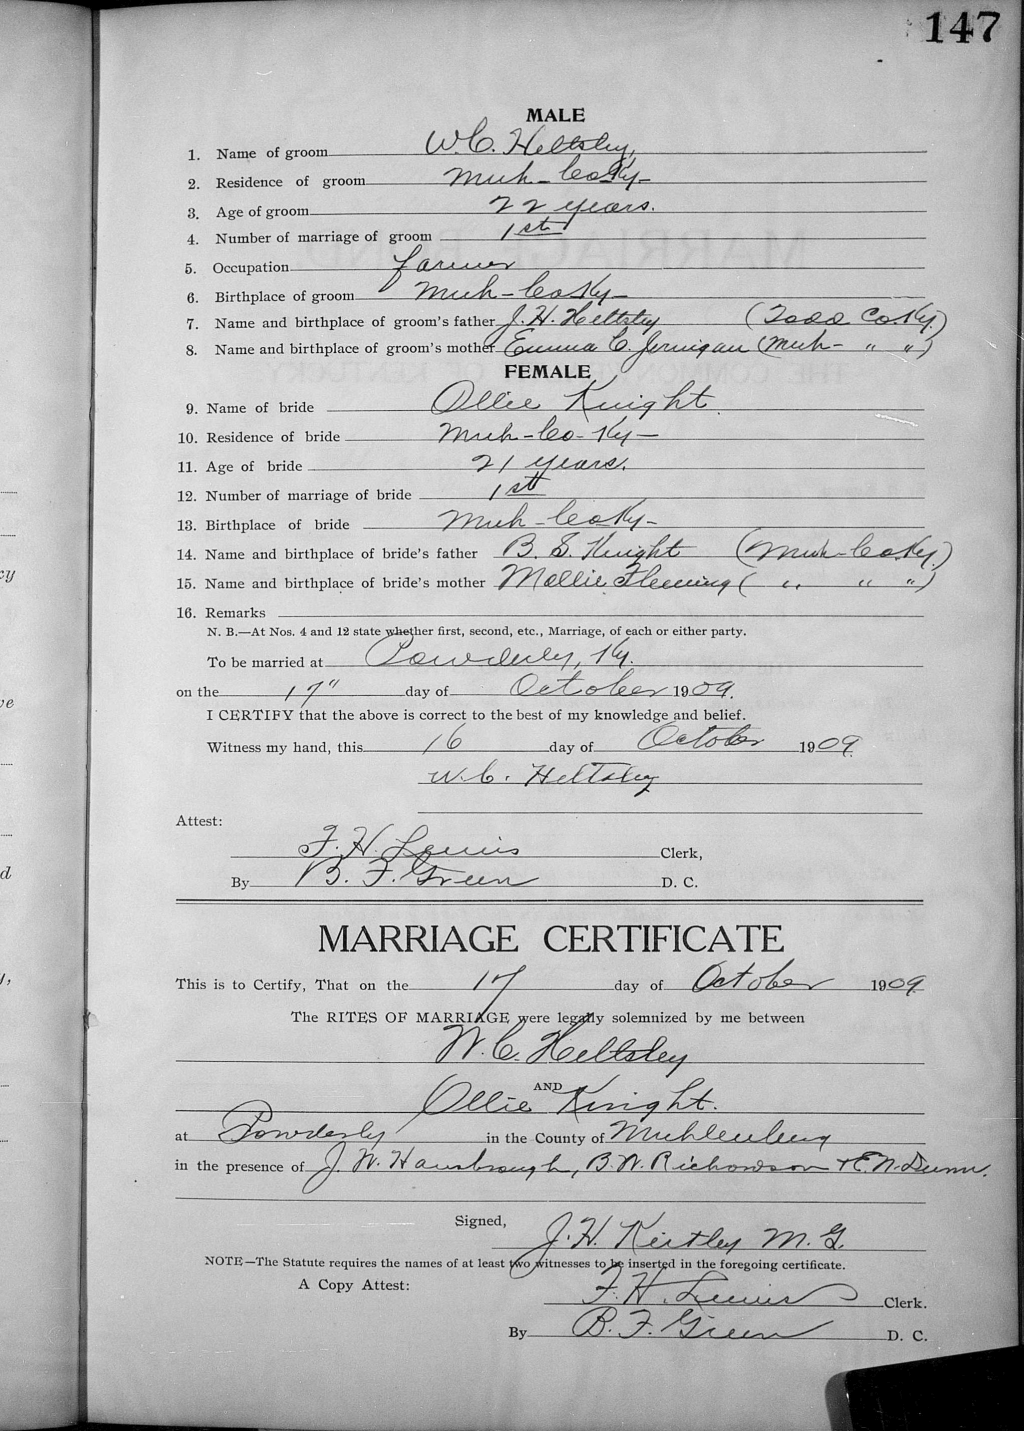 147
MALE
1. Name of groom W. C. Heltsley,
2. Residence of groom Muh - Co Ky -
3. Age of groom 22 years.
4. Number of marriage of groom 1st
5. Occupation farmer
6. Birthplace of groom Muh - Co Ky -
7. Name and birthplace of groom's father J. H. Heltsley (Todd Co. Ky.)
8. Name and birthplace of groom's mother Emma C. Jernigan (Muh - " ")
FEMALE
9. Name of bride Ollie Knight.
10. Residence of bride Muh - Co - Ky -
11. Age of bride 21 years.
12. Number of marriage of bride 1st
13. Birthplace of bride Muh - Co Ky -
14. Name and birthplace of bride's father B. S. Knight (Muh - Co. Ky.)
15. Name and birthplace of bride's mother Mollie Fleming ( " " ")
16. Remarks
N. B.—At Nos. 4 and 12 state whether first, second, etc., Marriage, of each or either party.
To be married at Powderly, Ky.
on the 17" day of October 1909.
I CERTIFY that the above is correct to the best of my knowledge and belief.
Witness my hand, this 16 day of October 1909.
W. C. Heltsley
Attest:
F. H. Lewis Clerk,
By B. F. Green D. C.
MARRIAGE CERTIFICATE
This is to Certify, That on the 17 day of October 1909
The RITES OF MARRIAGE were legally solemnized by me between
W. C. Heltsley
AND
Ollie Knight.
at Powderly in the County of Muhlenberg
in the presence of J. W. Hansbrough, B. W. Richardson + E. N. Dunn.
Signed,
J. H. Kirtley M. G.
NOTE—The Statute requires the names of at least two witnesses to be inserted in the foregoing certificate.
A Copy Attest:
F. H. Lewis Clerk.
By B. F. Green D. C.